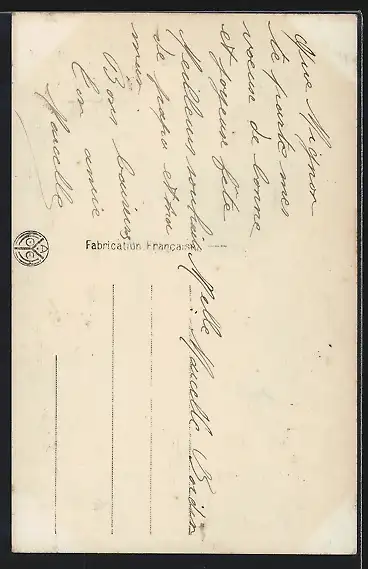 Que Mignon
te porte mes
voeux de bonne
et joyeuse fête
Meilleurs souhaits
de papa et ma
mie
Bons baisers
Ton amie
Marcelle
Fabrication Française
Melle Marcelle